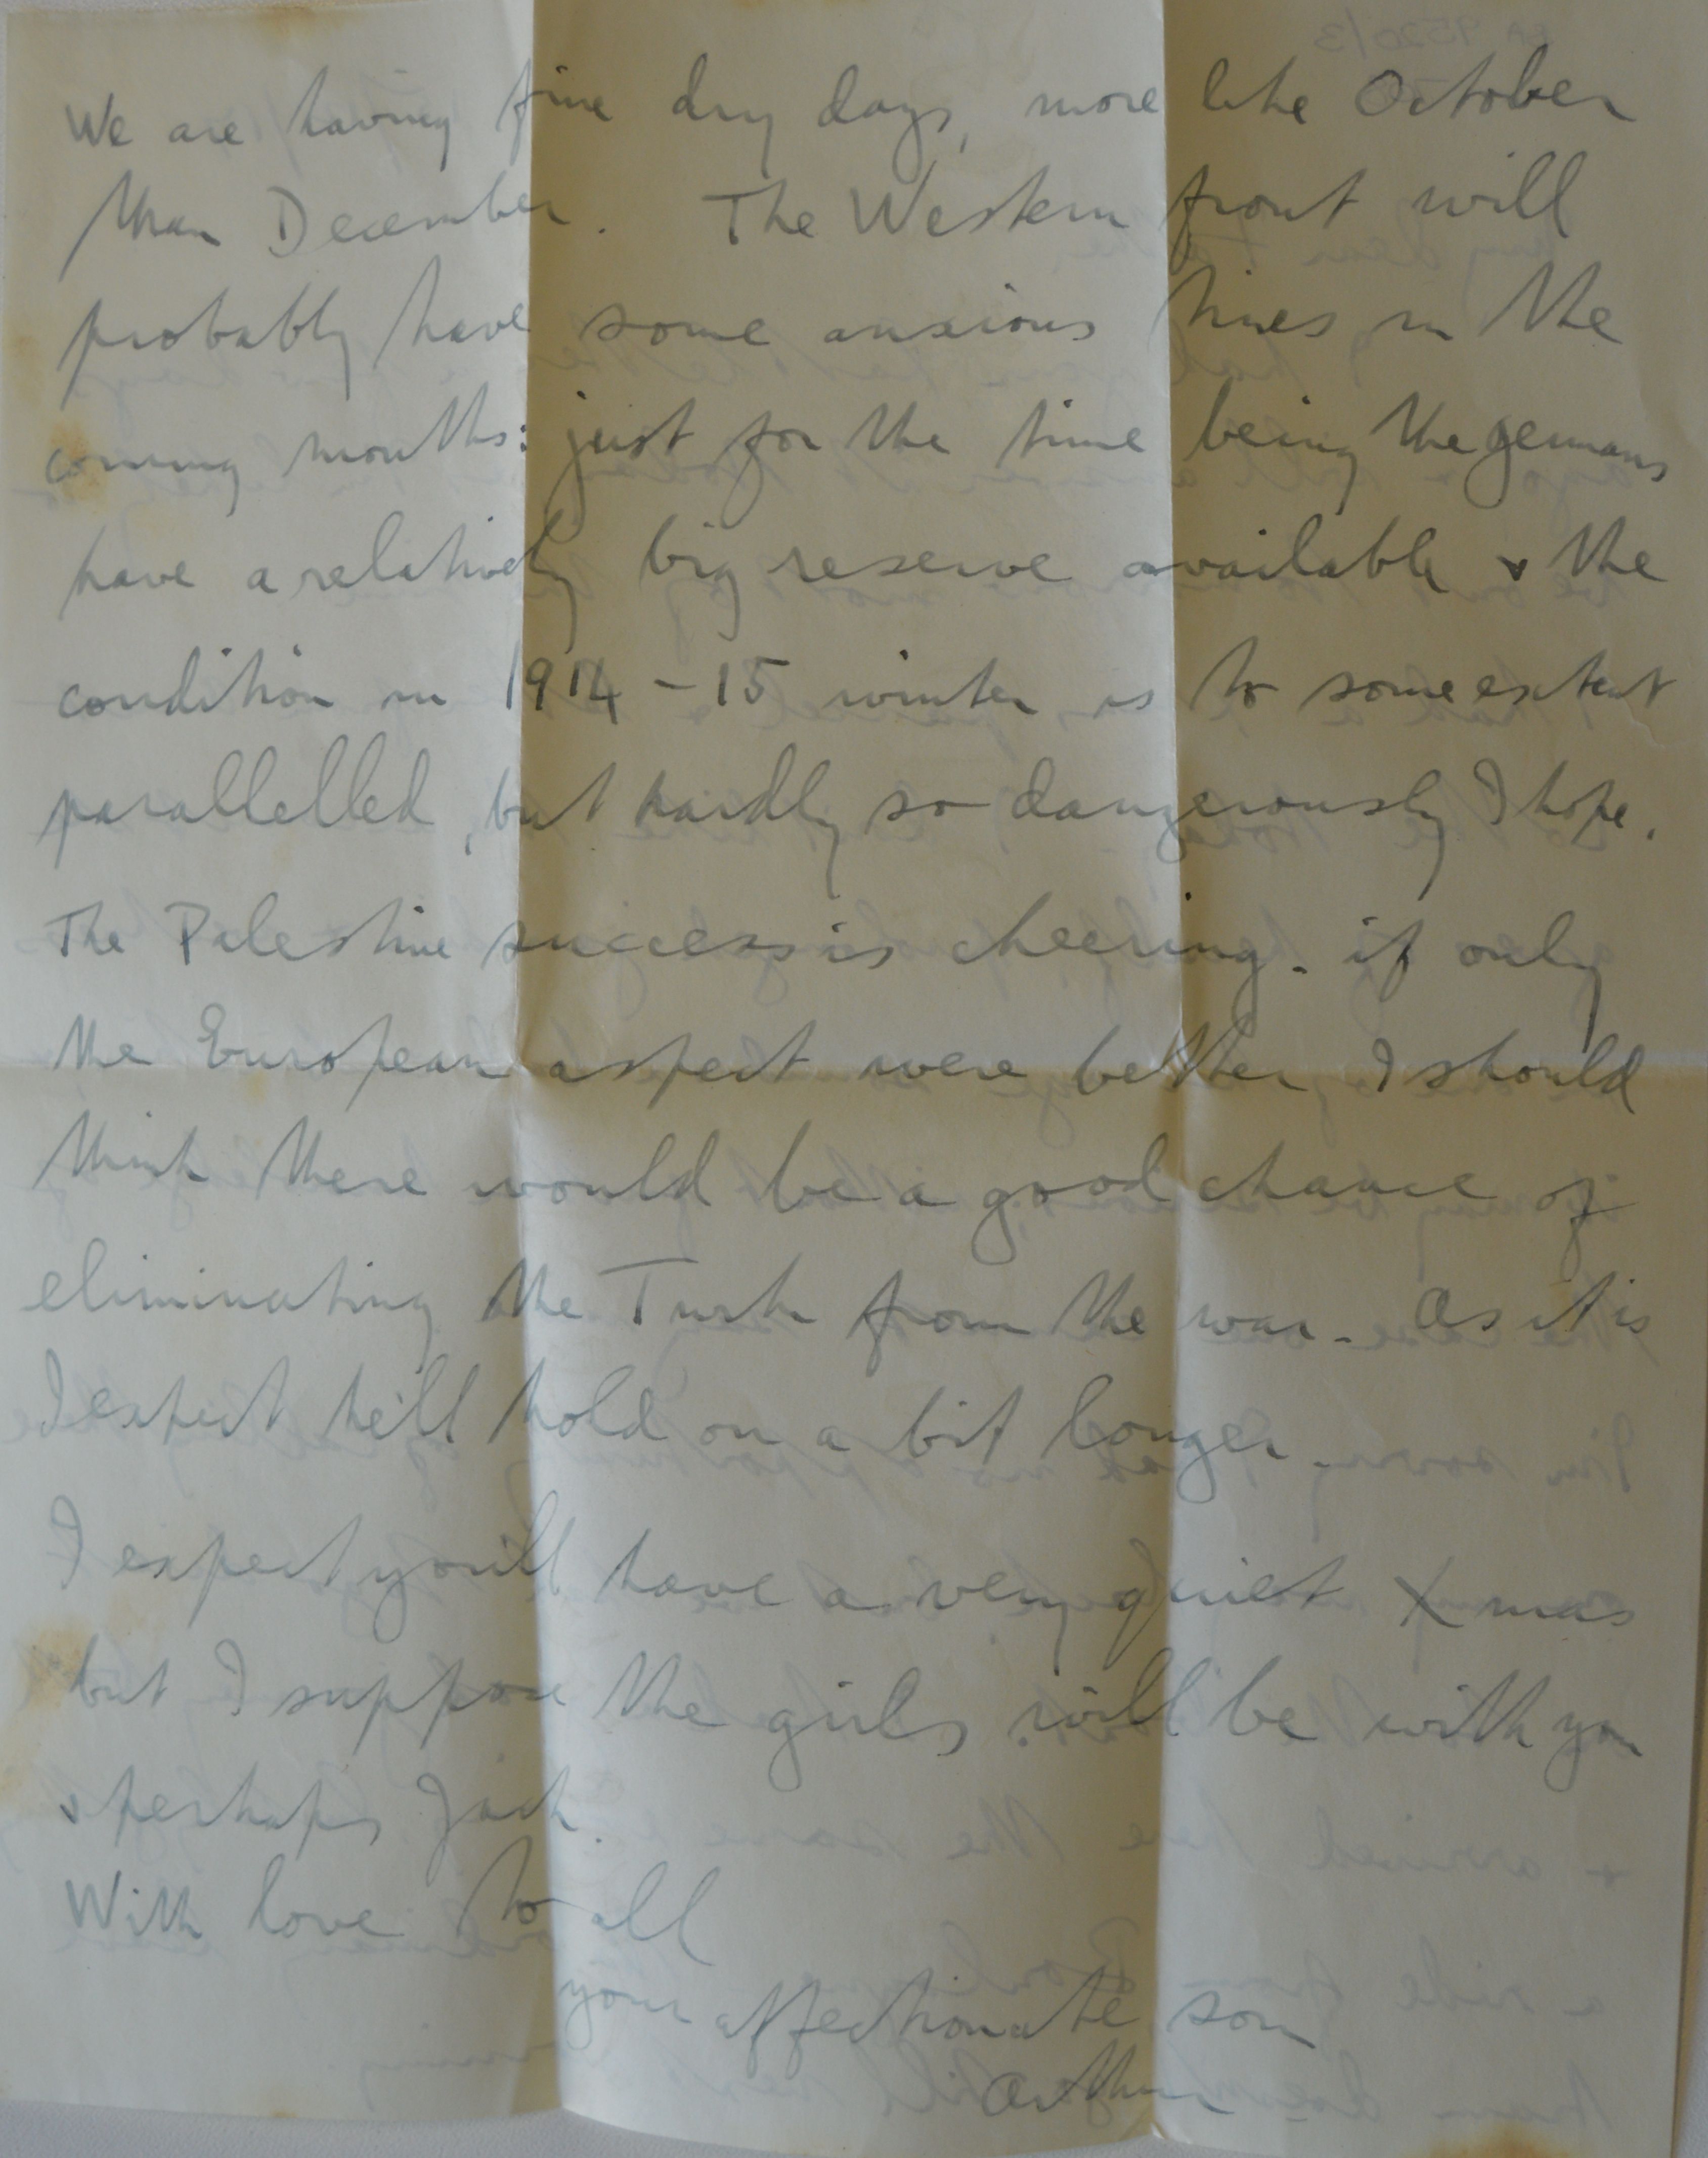 We are having fine dry days, more like October
than December. The Western front will
probably have some anxious times in the
coming months: just for the time being the Germans
have a relatively big reserve available & the
condition in 1914-15 winter is to some extent
parallelled, but hardly so dangerously I hope.
The Palestine success is cheering. if only
the European aspect were better I should
think there would be a good chance of
eliminating the Turk from the war. As it is
I expect he'll hold on a bit longer.
I expect you'll have a very quiet Xmas
but I suppose the girls will be with you
& perhaps Jack.
With love to all
your affectionate son
Arthur